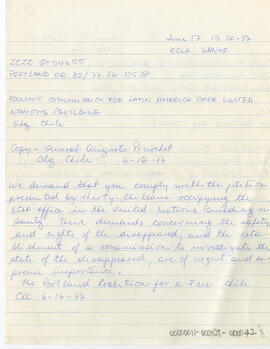 June 17 13 20-77
ECLA SANTE
ZCZC GTSN655
PORTLAND OR 82/77 16 1253P
ECONOMIC COMMISSION FOR LATIN AMERICA CARE UNITED
NATIONS BUILDING
Stg Chile
Copy - General Augusto Pinochet
Stg. Chile 6-16-77
We demand that you comply with the petition
presented by thirty Chileans occupying the
ECLA office in the United Nations Building in
Their demands concerning the safety
and rights of the disappeared, and the estab
lishment of a commission to investigate the
state of the disappeared, are of urgent and su
preme importance.
The Portland Coalition for a Free Chile
Col 6-16-77